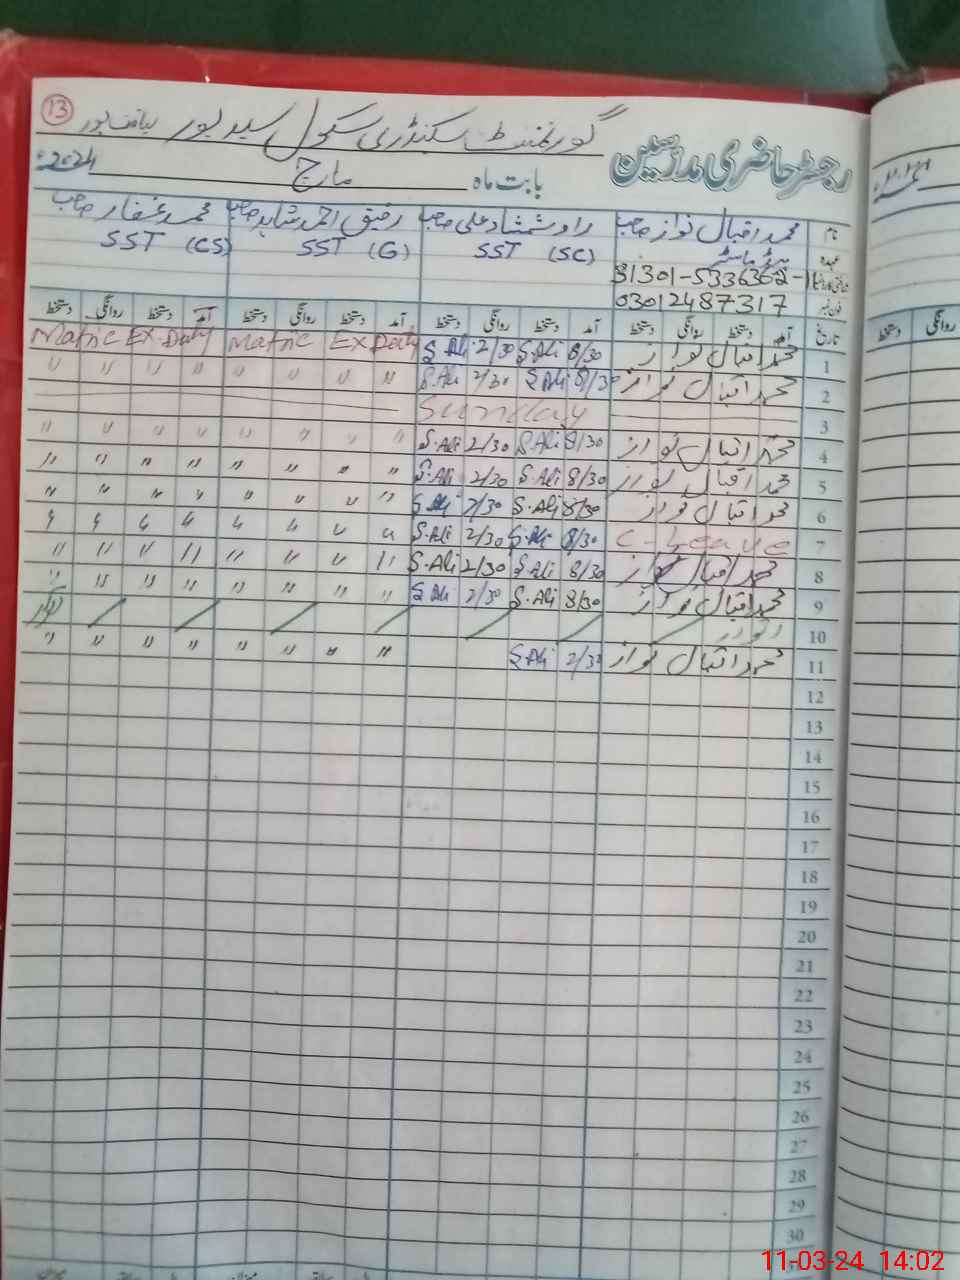 13
گورنمنٹ سکینڈری سکول سید پور لیاقت پور
رجسٹر حاضری مدرسین
بابت ماہ مارچ 2024ء
نام محمد اقبال نواز صاحب راؤ شمشاد علی صاحب رفیق احمد شاہد صاحب محمد غفار صاحب
عہدہ ہیڈ ماسٹر SST (SC) SST (G) SST (CS)
31301-5336362-1
فون نمبر 03012487317
تاریخ آمد دستخط روانگی دستخط آمد دستخط روانگی دستخط آمد دستخط روانگی دستخط آمد دستخط روانگی دستخط
1 محمد اقبال نواز 8/30 S.Ali 2/30 S.Ali Matric Ex Daily Matric Ex. Daily
2 محمد اقبال نواز 8/30 S.Ali 2/30 S.Ali " " " " " " " "
3 Sunday
4 محمد اقبال نواز 8/30 S.Ali 2/30 S.Ali " " " " " " " "
5 محمد اقبال نواز 8/30 S.Ali 2/30 S.Ali " " " " " " " "
6 محمد اقبال نواز 8/30 S.Ali 2/30 S.Ali " " " " " " " "
7 C-Leave 8/30 S.Ali 2/30 S.Ali " " " " " " " "
8 محمد اقبال نواز 8/30 S.Ali 2/30 S.Ali " " " " " " " "
9 محمد اقبال نواز 8/30 S.Ali 2/30 S.Ali " " " " " " " "
10 اتوار
11 محمد اقبال نواز 2/30 S.Ali " " " " " " " "
12
13
14
15
16
17
18
19
20
21
22
23
24
25
26
27
28
29
30
روانگی دستخط
11-03-24 14:02